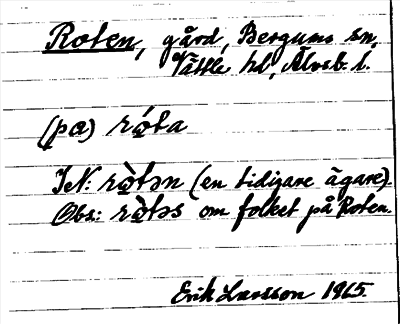 Roten, gård, Bergums sn,
Vättle hd, Älvsb. l.
(pɑ) ró̤ta
IeN: rò̤tən (en tidigare ägare).
Obs: rò̤təs om folket på Roten.
Erik Larsson 1965.